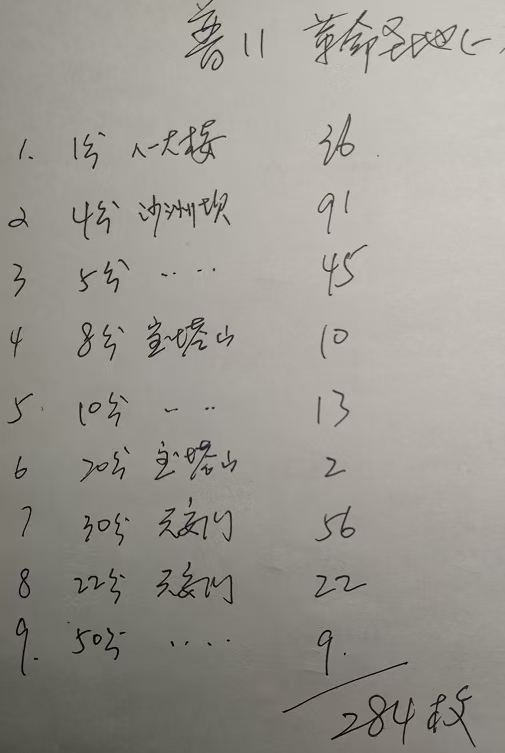 普11 革命圣地(一)
1. 1分 八一大楼 36
2 4分 沙洲坝 91
3 5分 ‥‥ 45
4 8分 宝塔山 10
5. 10分 ‥‥ 13
6 20分 宝塔山 2
7 30分 天安门 56
8 22分 天安门 22
9. 50分 ‥‥ 9.
284枚